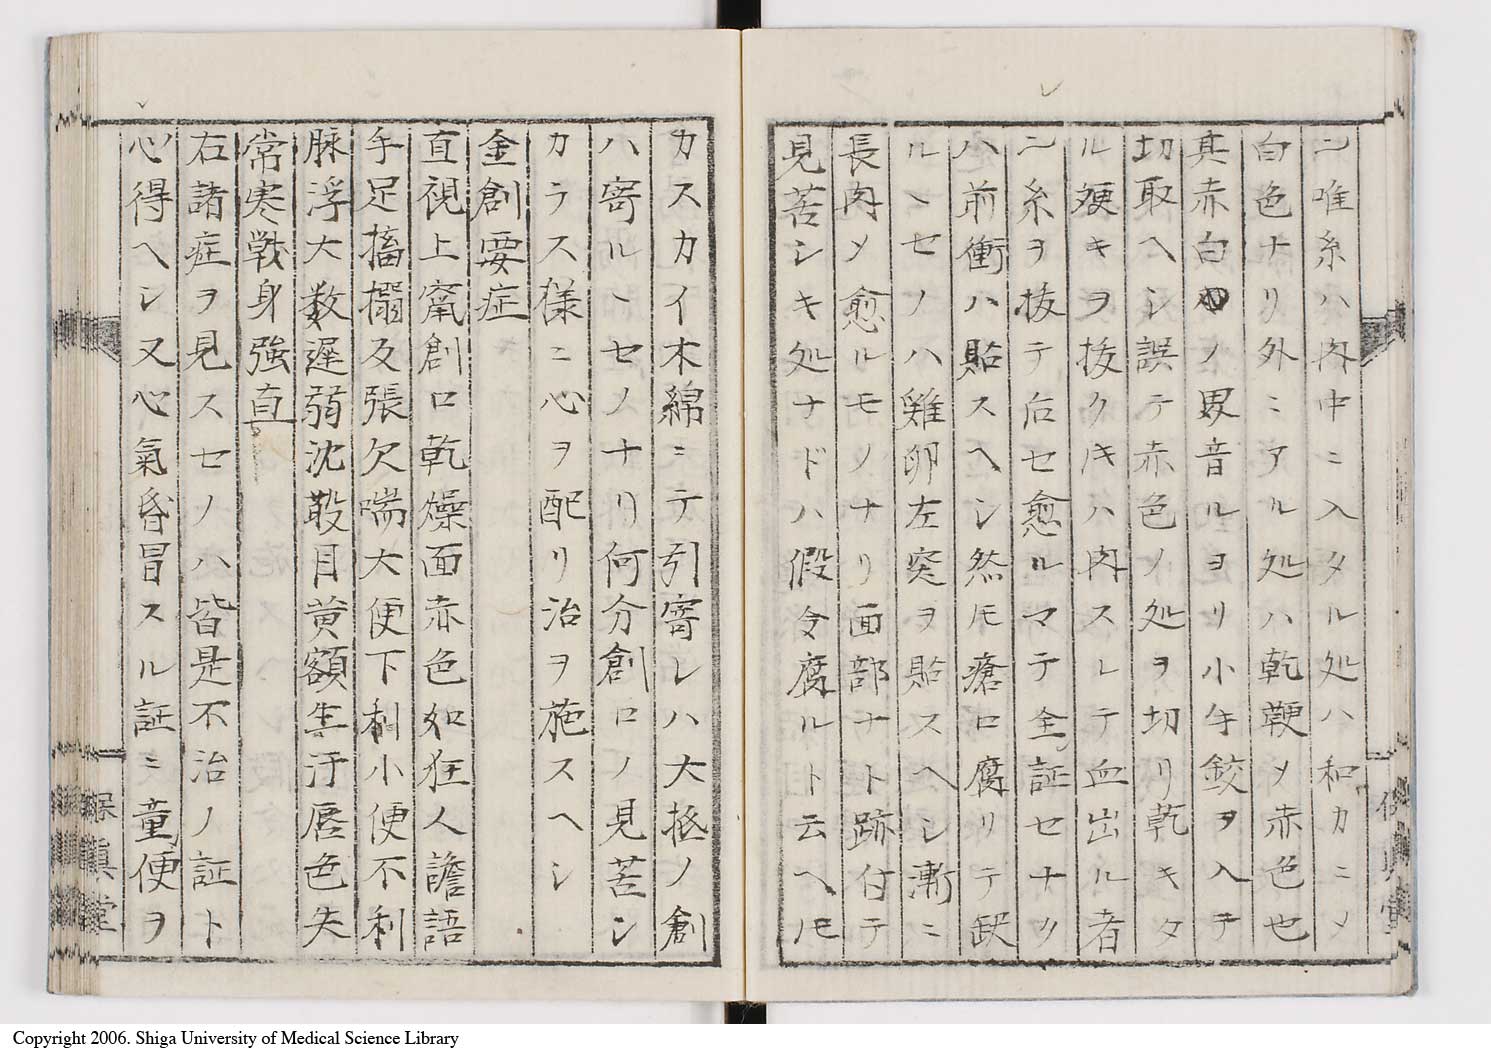 ニ唯糸ハ肉中ニ入タル処ハ和カニメ
白色ナリ外ニアル処ハ乾鞕メ赤色也
其赤白ノ界音ルヨリ小キ鋏ヲ入テ
切取ヘシ誤テ赤色ノ処ヲ切リ乾キタ
ル硬キヲ抜クキハ肉スレテ血出ル者
ニ糸ヲ抜テ后セ愈ルマテ全証セナリ
ハ前衝ハ貼スヘシ然圧瘡口腐リテ
ルヽセノハ雞卵左突ヲ貼スヘシ漸ニ
長肉メ愈ルモノナリ面部ナト跡付テ
見苦シキ処ナドハ假令腐ルト云ヘ圧
カスカイ木綿ニテ引寄レハ大抵ノ創
ハ寄ルヽセノナリ何分創口ノ見苦シ
カラス様ニ心ヲ配リ治ヲ施スヘシ
金創要症
直視上竄創口乾燥面赤色如狂人譫語
手足搐搦及張欠喘大便下利小便不利
脉浮大数遅弱沈散目黄額生汗唇色失
常寒戰身強直
右諸症ヲ見スセノハ皆是不治ノ証ト
心得ヘシ又心氣昏冒スル証ニ童便ヲ
保真堂
Copyright 2006. Shiga University of Medical Science Library